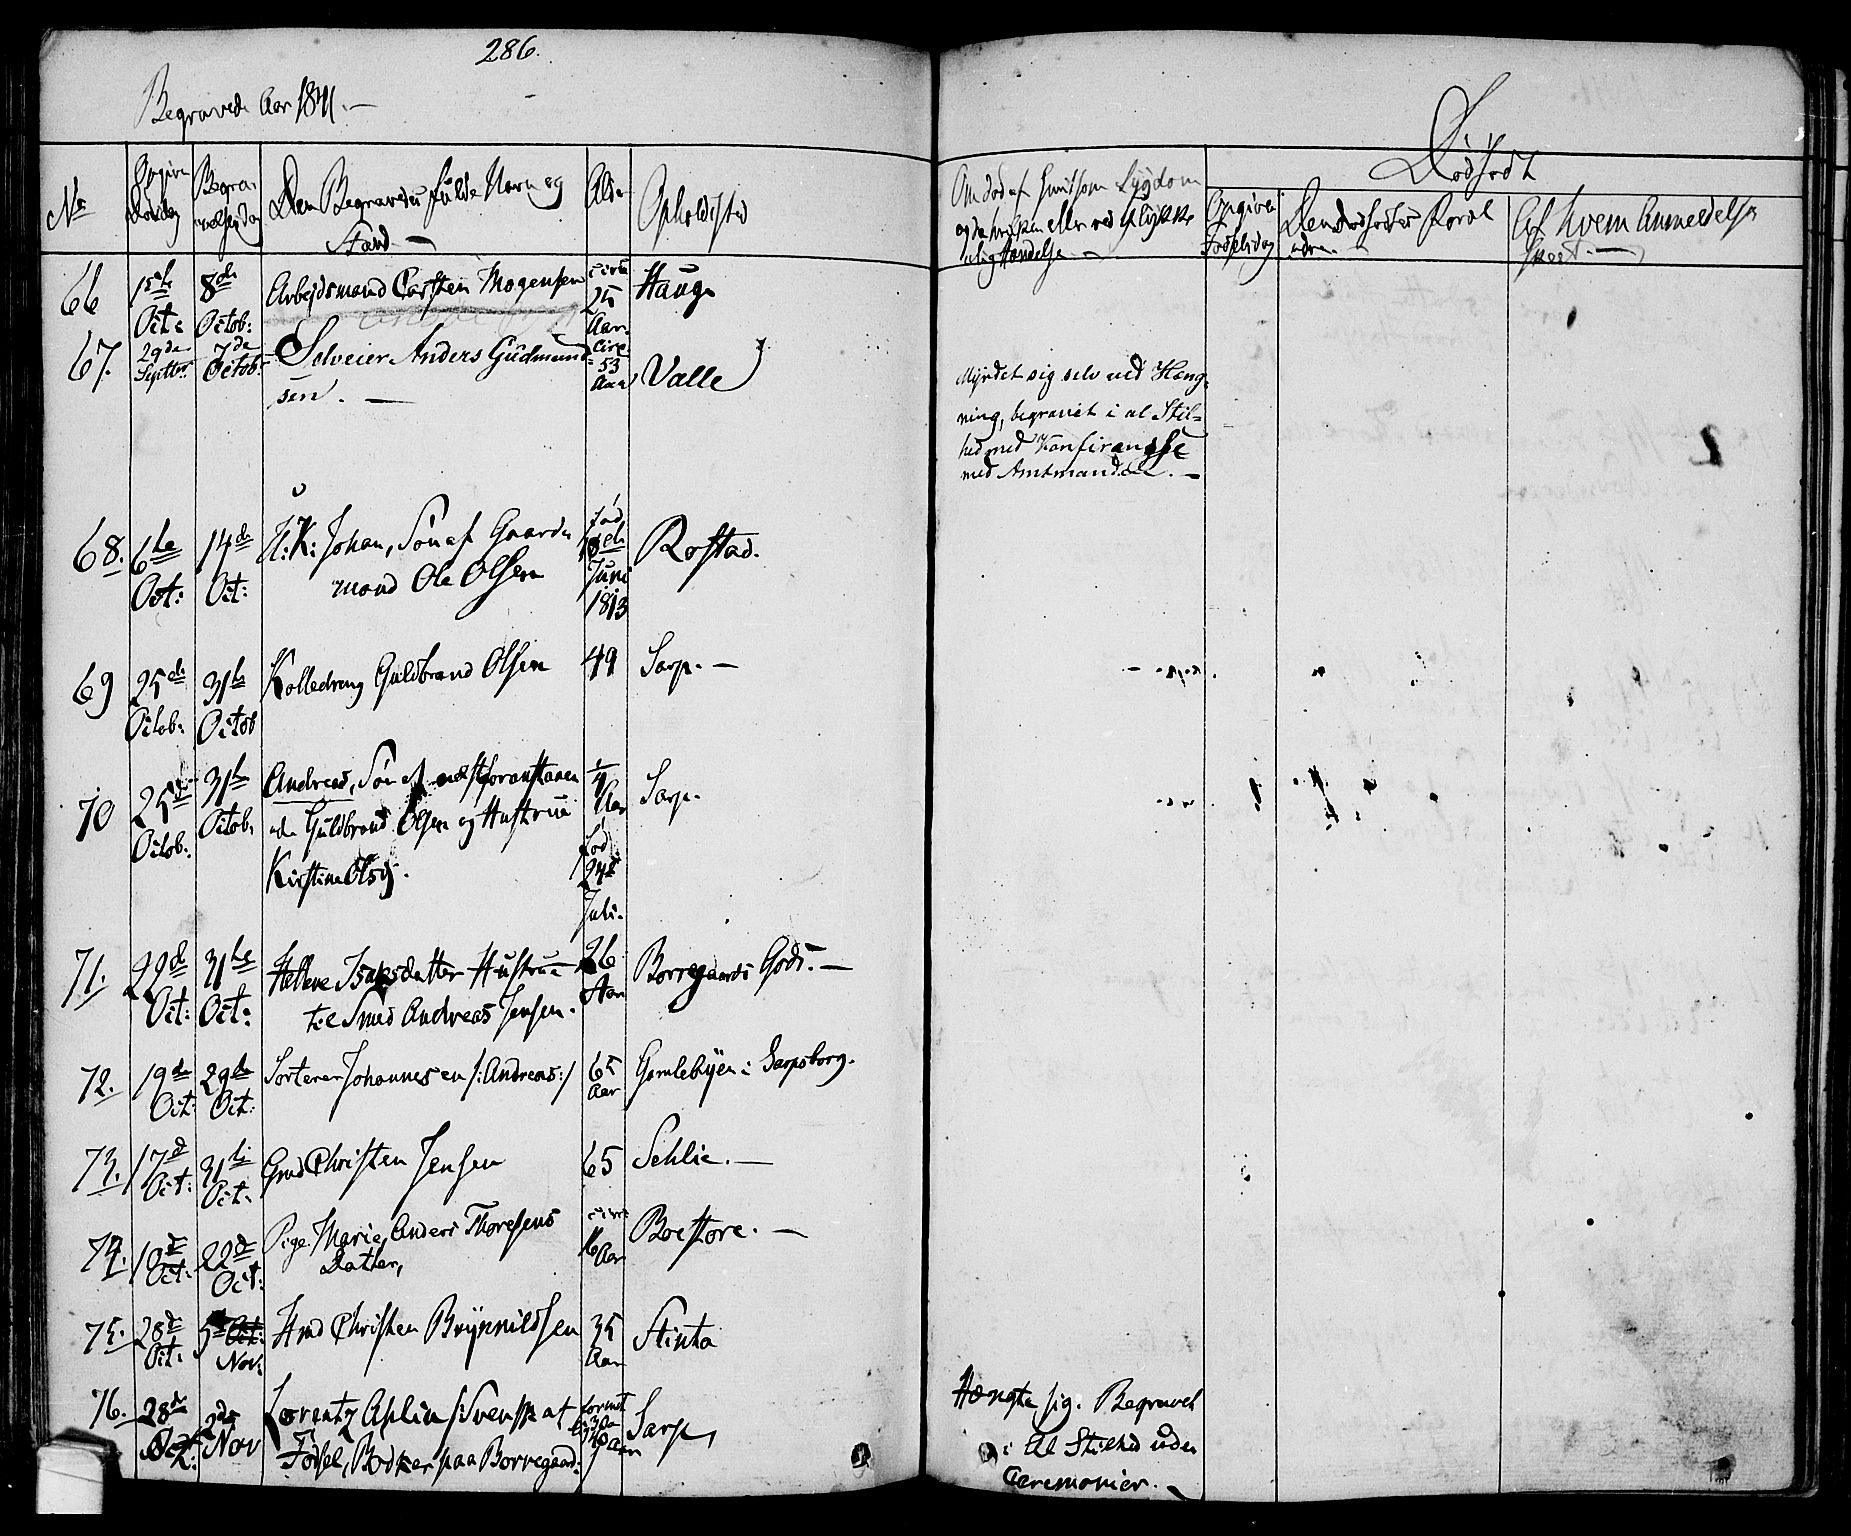 286.
Begravede Aar 1841. —
No
Opgiven Dødsdag
Begravelsesdag
Den Begravedes fulde Navn og
Stand. —
Alder
Opholdssted
Om død af Smitsom Sygdom
eller ved Ulykke
lig Hændelse. —
Dødfødt
Opgiven
Fødselsdag
Den Dødfødtes Foræl
dre. —
Af hvem Anmeldelse
skeet. —
66 1ste Oct: 8de Octob: Arbejdsmand Carsten Mogensen circa 25 Aar. Hauge
67. 29de Septbr. 7de Octob: Selveier Anders Gudmund
sen. — circa 53 Aar Valle
Myrdet sig selv ved Hæng-
ning, begravet i al Stil-
hed med Konferanse
med Amtmanden. —
68. 6te Oct: 14de Oct: U: K: Johan, Søn af Gaard
mand Ole Olsen fød Juni Rostad.
69 25de Octob: 31te Octob Kulledreng Guldbrand Olsen 49 Sarp. —
70 25de Octob: 31te Octob: Andreas, Søn af næstforanstaaen
de Guldbrand Olsen og Hustrue
Kirstine Olsdj. Aar fød Juli. Sarp.
71. 22de Oct: 31te Oct: Hellene Isaksdatter Hustrue
til Smed Andreas Jensen. 26 Aar Borregaards Gods. —
72. 19de Oct: 29de Oct: Sorterer Johannesen /: Andreas :/ 65 Aar Gamlebyen i Sarpsborg.
73. 17de Oct: 31te Oct: Gmd Christen Jensen 65 Sehlie. —
74. 10de Oct: 22de Oct: Pige Marie, Anders Thoresens
Datter, circa 16 Aar Boestore. —
75. 28de Oct: 5te Oct: Nov: Hmd Christen Brynnildsen 35 Aar Stinta
76. 28de Oct: 2de Nov Lorentz Aplin /: Svensk af
Fødsel, Bødker paa Borregaard: Aar Sarp,
Hængte sig. Begravet
i Al Stilhed uden
Ceremonier. —